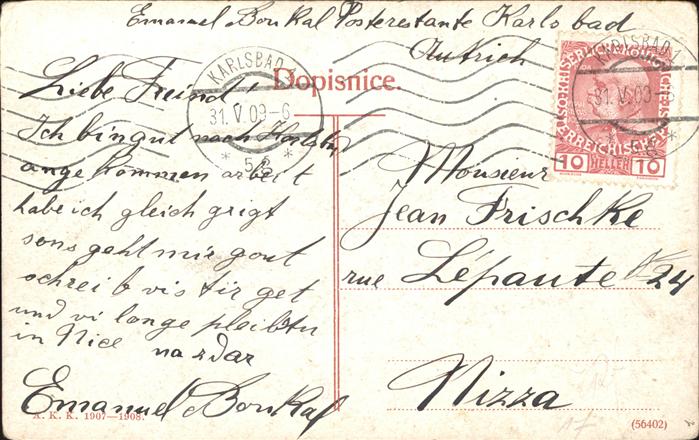 Emanuel Boukal Posterestante Karlsbad
Autrich
Dopisnice.
KARLSBAD 1
31.V.09-6
* 5c *
KARLSBAD 1
31.V.09
10 HELLER 10
Liebe Freind!
Ich bin gut nach Karlsbad
ange kommen arbeit
habe ich gleich grigt
sons geht mir gout
schreib vis tir get
und vi lange pleibtu
in Nice
na zdar
Emanuel Boukal
Monsieur
Jean Frischke
rue Lépante № 24
Nizza
A. K. K. 1907—1908.
(56402)